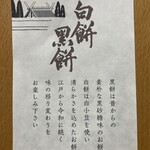 白餅
黒餅
黒餅は昔からの
素朴な黒砂糖味のお餅
白餅は白小豆を使い
清らかさを込めたお餅
江戸から令和に続く
味の移り変わりを
お楽しみ下さい